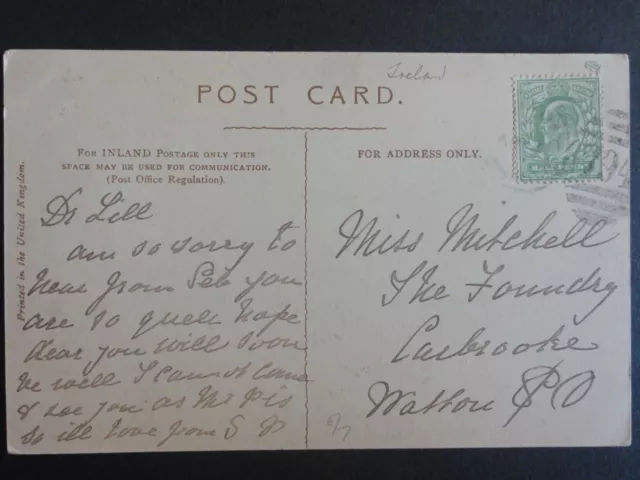 Ireland
POST CARD.
FOR INLAND POSTAGE ONLY THIS
SPACE MAY BE USED FOR COMMUNICATION.
(Post Office Regulation).
FOR ADDRESS ONLY.
Printed in the United Kingdom.
Dr Lill
am so sorry to
hear from Seb you
are so queer hope
dear you will soon
be well I cannot come
& see you as Mr Pis
so ill love from S P
Miss Mitchell
The Foundry
Carbrooke
Watton PO
6/7